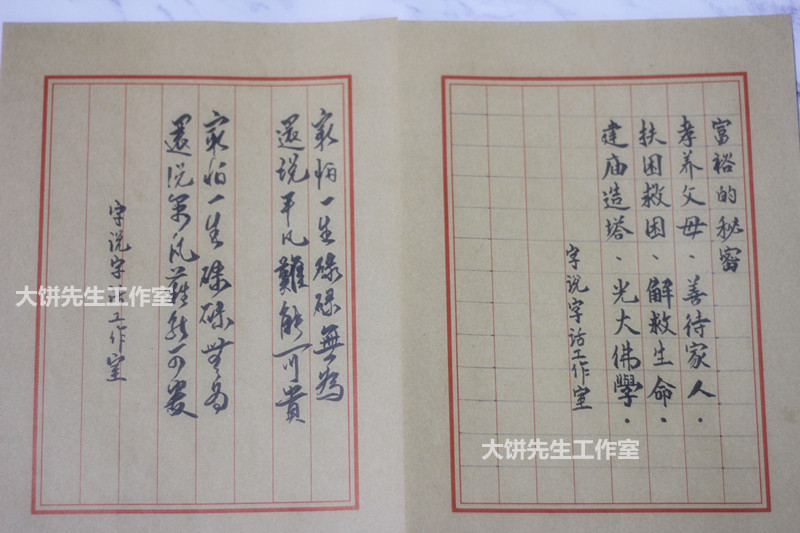 富裕的秘密
孝养父母、善待家人.
扶困救困、解救生命.
建庙造塔、光大佛學.
字说字话工作室
最怕一生碌碌無為
還说平凡難能可貴
最怕一生碌碌無為
還说平凡難能可貴
字说字话工作室
大饼先生工作室
大饼先生工作室